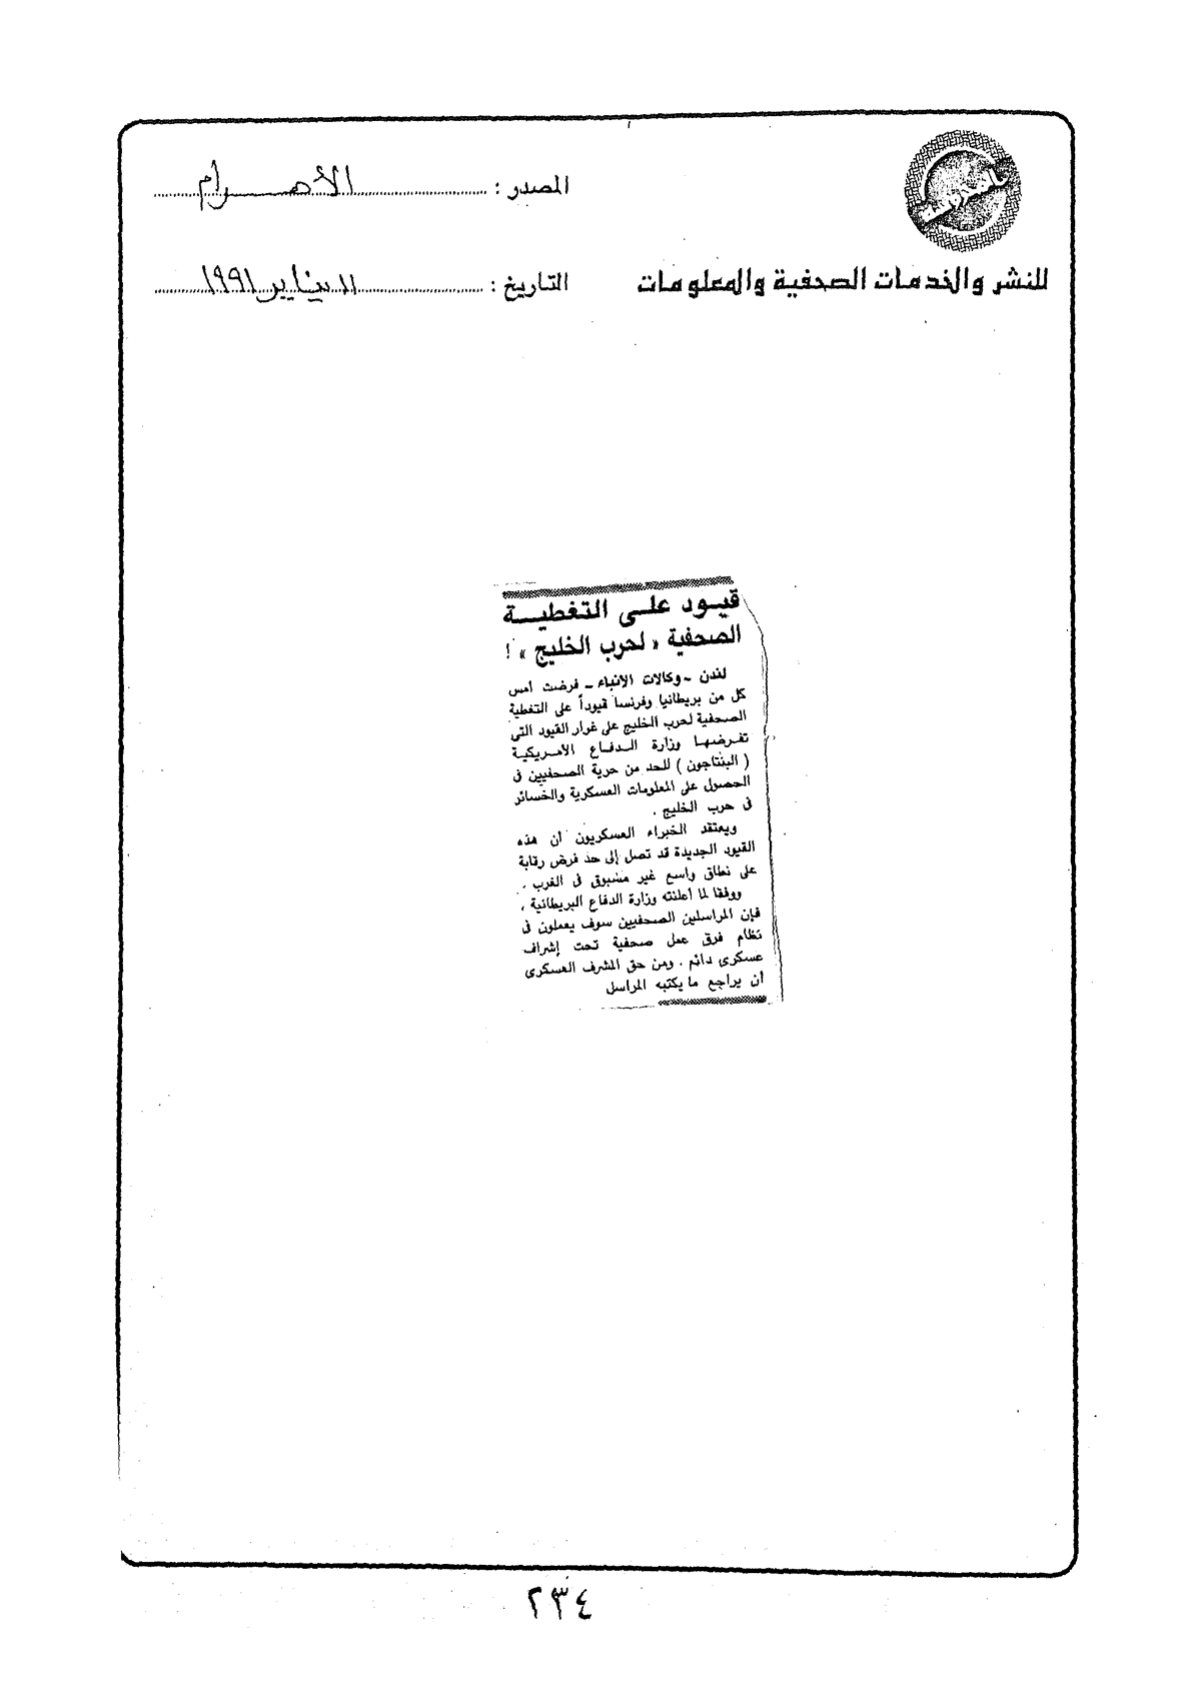 المصدر : الأهـرام
للنشر والخدمات الصحفية والمعلومات
التاريخ : ١١ يناير ١٩٩١
قيـود علـى التغطيـــة
الصحفية « لحرب الخليج » !
لندن ـ وكالات الانباء ـ فرضت أمس
كل من بريطانيا وفرنسا قيوداً على التغطية
الصحفية لحرب الخليج على غرار القيود التى
تفـرضهـا وزارة الـدفـاع الأمـريكيـة
( البنتاجون ) للحد من حرية الصحفيين فى
الحصول على المعلومات العسكرية والخسائر
فى حرب الخليج .
ويعتقد الخبراء العسكريون أن هذه
القيود الجديدة قد تصل إلى حد فرض رقابة
على نطاق واسع غير مسبوق فى الغرب .
ووفقا لما أعلنته وزارة الدفاع البريطانية ،
فإن المراسلين الصحفيين سوف يعملون فى
نظام فرق عمل صحفية تحت إشراف
عسكرى دائم . ومن حق المشرف العسكرى
أن يراجع مايكتبه المراسل
٢٣٤